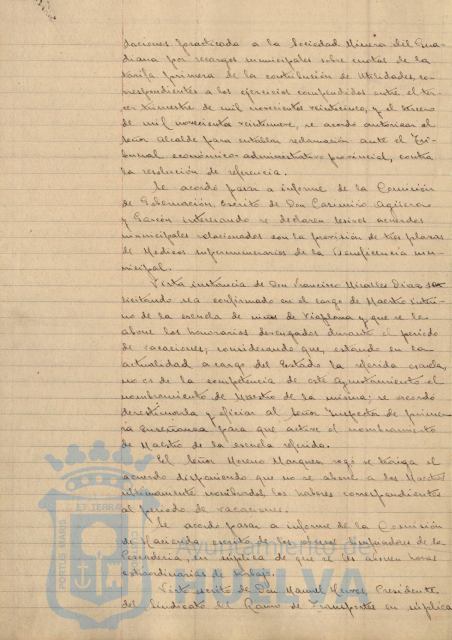 daciones practicada a la Sociedad Minera del Gua-
diana por recargos municipales sobre cuotas de la
tarifa primera de la contribución de Utilidades, co-
rrespondientes a los ejercicios comprendidos entre el ter-
cer trimestre de mil novecientos veinticinco, y el tercero
de mil novecientos veintinueve, se acordó autorizar al
Señor Alcalde para entablar reclamación ante el Tri-
bunal económico-administrativo provincial, contra
la resolución de referencia.
Se acordó pasar a informe de la Comisión
de Gobernación, escrito de Don Casimiro Agüero
y Garcón interesando se declaren lesivos acuerdos
municipales relacionados con la provisión de tres plazas
de Médicos supernumerarios de la Beneficencia mu-
nicipal.
Vista instancia de Don Francisco Miralles Díaz so-
licitando sea confirmado en el cargo de Maestro inter-
ino de la escuela de niños de y que se le
abone los honorarios devengados durante el período
de vacaciones; considerando que, estando en la
actualidad a cargo del Estado la referida escuela,
no es de la competencia de este Ayuntamiento el
nombramiento de Maestro de la misma; se acordó
desestimarla y oficiar al Señor Inspector de prime-
ra Enseñanza para que active el nombramiento
de Maestro de la escuela referida.
El Señor Moreno Marquez rogó se traiga el
acuerdo disponiendo que no se abone a los Maestros
últimamente nombrados, los haberes correspondientes
al período de vacaciones.
Se acordó pasar a informe de la Comisión
de Hacienda escrito de los obreros de la
en súplica de que se les abonen horas
extraordinarias de trabajo.
Visto escrito de Don Manuel Presidente
del Sindicato del Ramo de Transportes en súplica
PORTUS MARIS ET TERRAE
Ayuntamiento de
HUELVA